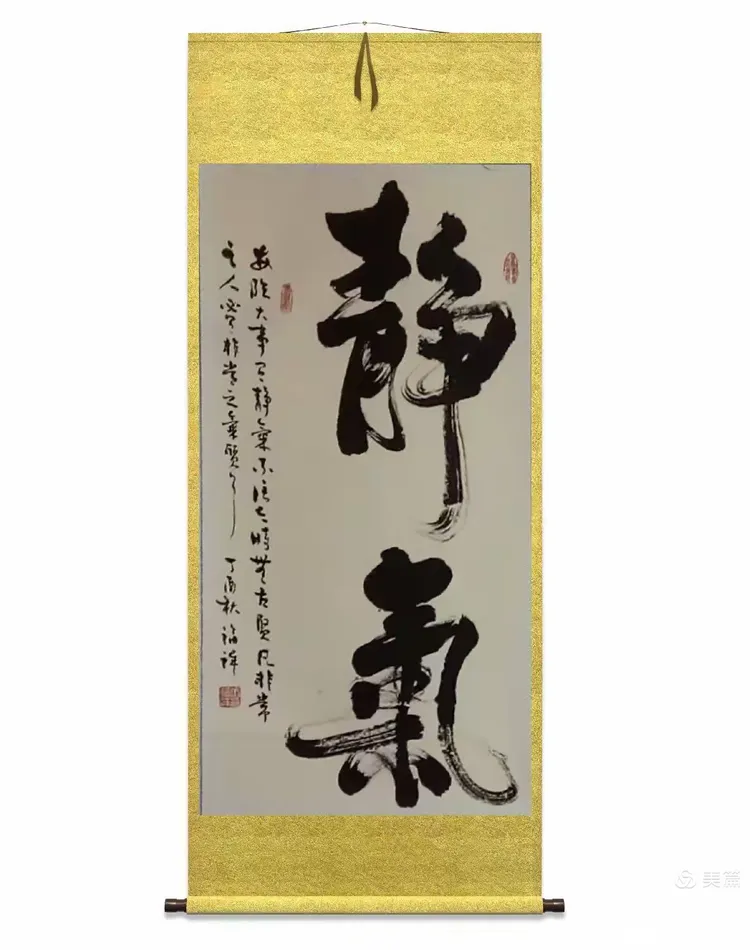 靜氣
每臨大事有靜氣不信今時無古賢凡非常
之人必有非常之氣質 丁酉秋福祥
美篇